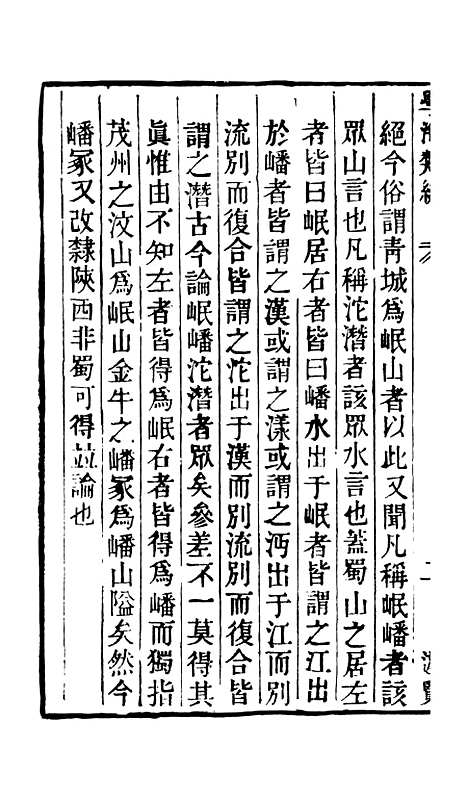 學海類編
二
絕今俗謂靑城爲岷山者以此又聞凡稱岷嶓者該
眾山言也凡稱沱潛者該眾水言也蓋蜀山之居左
者皆曰岷居右者皆曰嶓水出于岷者皆謂之江出
於嶓者皆謂之漢或謂之漾或謂之沔出于江而別
流別而復合皆謂之沱出于漢而別流別而復合皆
謂之潛古今論岷嶓沱潛者眾矣參差不一莫得其
眞惟由不知左者皆得爲岷右者皆得爲嶓而獨指
茂州之汶山爲岷山金牛之嶓冢爲嶓山隘矣然今
嶓冢又改隸陝西非蜀可得並論也